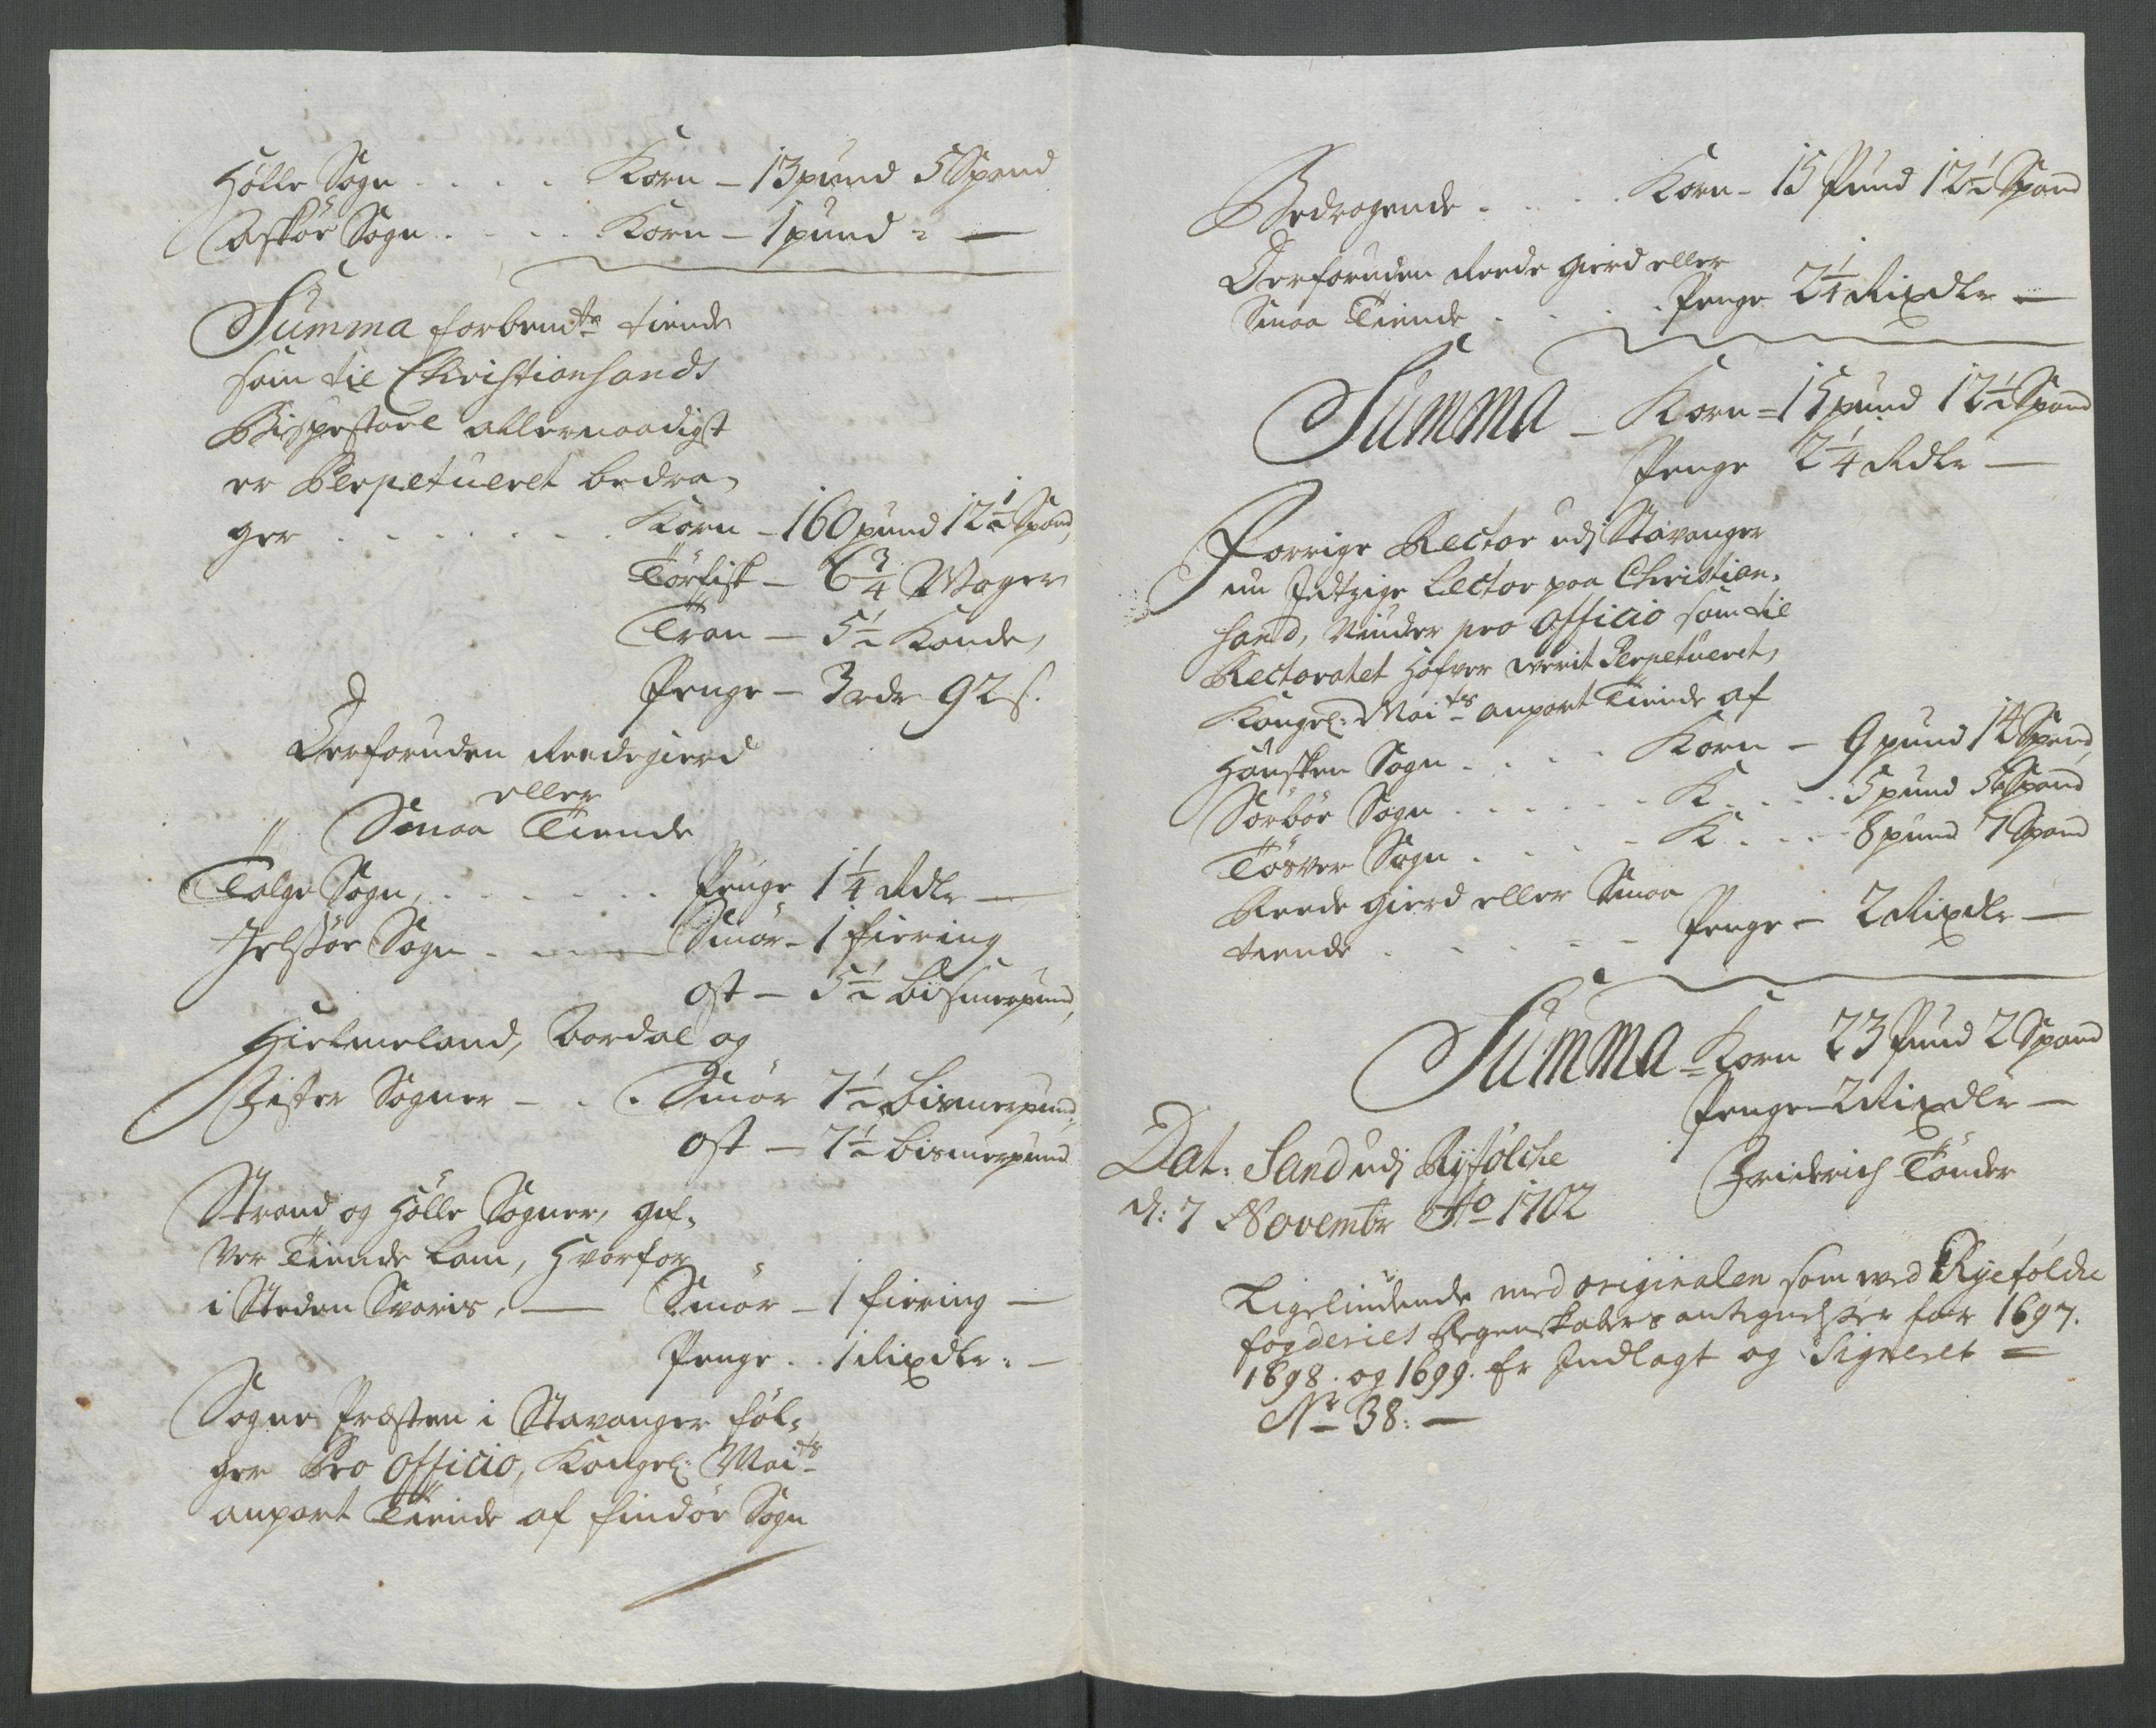 Hølle Sogn . . . . Korn – 13 pund 5 Spand
Askøe Sogn . . . . Korn – 1 pund : —
Summa forbemte tiende
som til Christiansands
Bispestoel allernaadigst
er Perpetueret bedra-
ger . . . . . . . Korn – 160 pund 12½ Spand,
Tørfisk – 6¾ Woger
Tran – 5½ Kande,
Penge – 3 rdr 92 s.
Derforuden Reedegierd
eller
Smaa Tiende
Talge Sogn, . . . . . . Penge 1¼ Rdlr —
Jelsøe Sogn . . . . Smør – 1 fiering
ost – 5½ bismerpund,
Hielmeland, Aardal og
Fister Sogner – . . Smør 7½ bismerpund,
ost – 7½ bismerpund
Strand og Hølle Sogner, gif-
ver Tiende Lam, Hvorfor
i Steden Svaris, — Smør – 1 fiering —
Penge . . 1 Rixdlr : —
Sogne Præsten i Stavanger føl-
ger Pro Officio, Kongel: Maits
anpart Tiende af Findøe Sogn
Bedragende . . . . Korn – 15 Pund 12½ Spand
Derforuden Reede gierd eller
Smaa Tiende . . . . Penge 2¼ Rixdlr —
Summa – Korn = 15 pund 12½ Spand
Penge 2¼ Rdlr —
Forrige Rector udj Stavanger
nu Jdtzige Lector paa Christian-
sand, Niuder pro Officio som til
Rectoratet hafver verit Perpetueret,
Kongel: Maits anpart Tiende af
Hausken Sogn . . . . Korn – 9 pund 14 Spand,
Sørbøe Sogn . . . . . . K . . . . 5 pund 5 Spand
Tøsver Sogn . . . . . K . . . 8 pund 7 Spand
Reede gierd eller Smaa
tiende . . . . . Penge – 2 Rixdlr —
Summa = Korn 23 Pund 2 Spand
Penge – 2 Rixdlr —
Dat: Sand udj Ryfølche
d: 7 Novembr Ao 1702
Friderich Tønder
Ligelüdende med originalen som ved Ryefølche
fogderies Regenskabers antegnelser for 1697.
1698. og 1699. Er Jndlagt og Signeret =
No 38: —